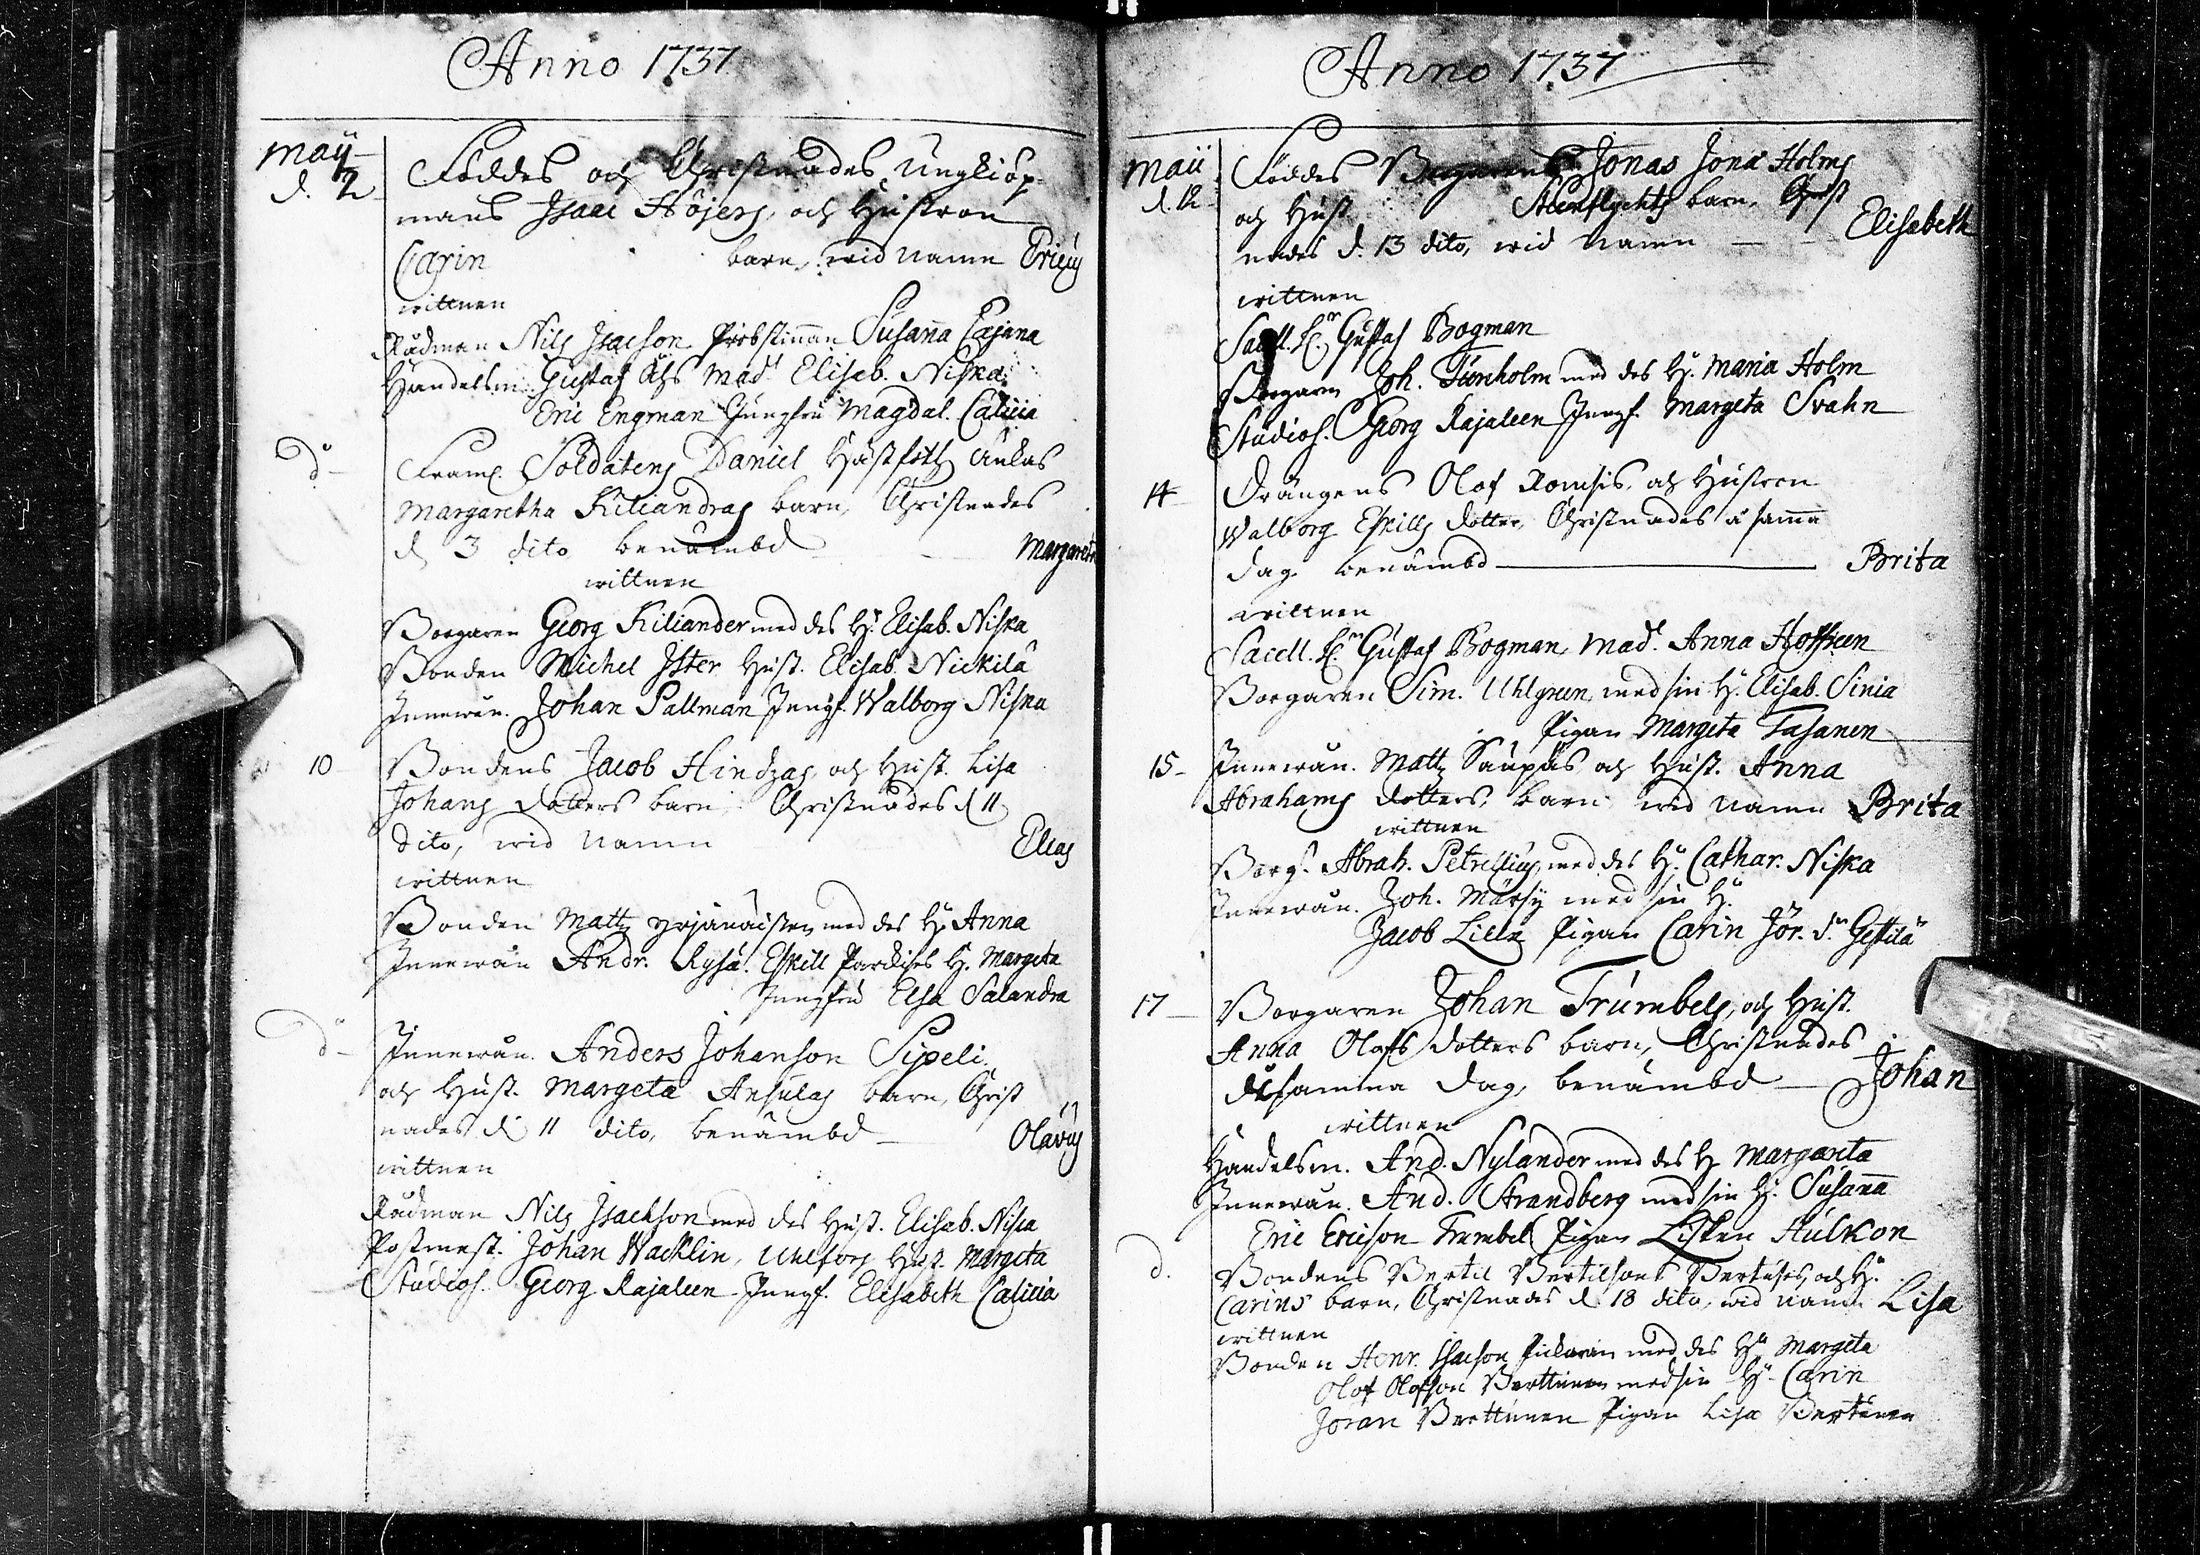 Anno 1737
Maÿ
d. 2
Föddes och Christnades Ungkiöp-
mans Isaac Höjers, och Hustron
Carin barn, wid namn Ericus
wittnen
Rådman Nils Isacson Probstinnan Susanna Cajana
Handelsm. Gustaf Ahs Mad. Elisab. Niska
Eric Engman Jungfru Magdal. Calicia
d:o
Framl. Soldatens Daniel Hästfoth Enkas
Margaretha Kiliandras barn, Christnades
d. 3 dito benämbd Margareta
wittnen
Borgaren Georg Kiliander med des H. Elisab. Niska
Bonden Michel Ister Hust. Elisab. Nickilä
Innewån. Johan Pallman Jungf. Walborg Niska
10
Bondens Jacob Hindzas, och Hust. Lisa
Johans dotters barn, Christnades d. 11
dito, wid namn Elias
wittnen
Bonden Matts Yrjänäisen med des H. Anna
Innewån. Andr. Rysä. Eskill Pardises H. Margeta
Jungfru Elsa Salandra
d:o
Innewån. Anders Johanson Sipeli
och Hust. Margeta Ansulas barn, Christ
nades d. 11 dito, benämbd Olavus
wittnen
Rådman Nils Isackson med des Hust. Elisab. Nisca
Postmest. Johan Wacklin, Uhlfors Hust. Margeta
Studios. Georg Rajaleen Jungf. Elisabeth Calicia
Anno 1737
Maii
d. 12
Föddes Borgarens Jonas Jonæ Holms
och Hust. Steenflychts barn, Christ
nades d. 13 dito, wid namn Elisabeth
wittnen
Sacell. H:r Gustaf Bogman
Borgaren Joh. Tornholm med des H. Maria Holm
Studios. Georg Rajaleen Jungf. Margeta Svahn
14
Drängens Olof Romsis, och Hustron
Walborg Eskills dotter, Christnades å samma
dag benämbd Brita
wittnen
Sacell. H:r Gustaf Bogman, Mad. Anna Hoffreen
Borgaren Sim. Uhlgreen, med sin H. Elisab. Sinia
Pigan Margeta Tasanen
15
Innewån. Matts Saupäs och Hust. Anna
Abrahams dotters, barn wid namn Brita
wittnen
Borg. Abrah. Petrellius, med des H. Cathar. Niska
Innewån. Joh. Märsy med sin H.
Jacob Lillr Pigan Carin Jör. d. Gestilä
17
Borgaren Johan Trumbels, och Hust.
Anna Olofs dotters barn, Christnades
samma dag, benämbd Johan
wittnen
Handelsm. And. Nylander med des H. Margareta
Innewån. And. Strandberg med sin H. Susanna
Eric Ericson Trumbel Pigan Lisken Hulkon
d.
Bondens Bertil Bertilsons Bertuses, och H.
Carins barn, Christnades d. 18 dito, wid namn Lisa
wittnen
Bonden Henr. Isacson med des H. Margeta
Olof Olofson Berttunen med sin H. Carin
Joran Berttunen Pigan Lisa Bertunen